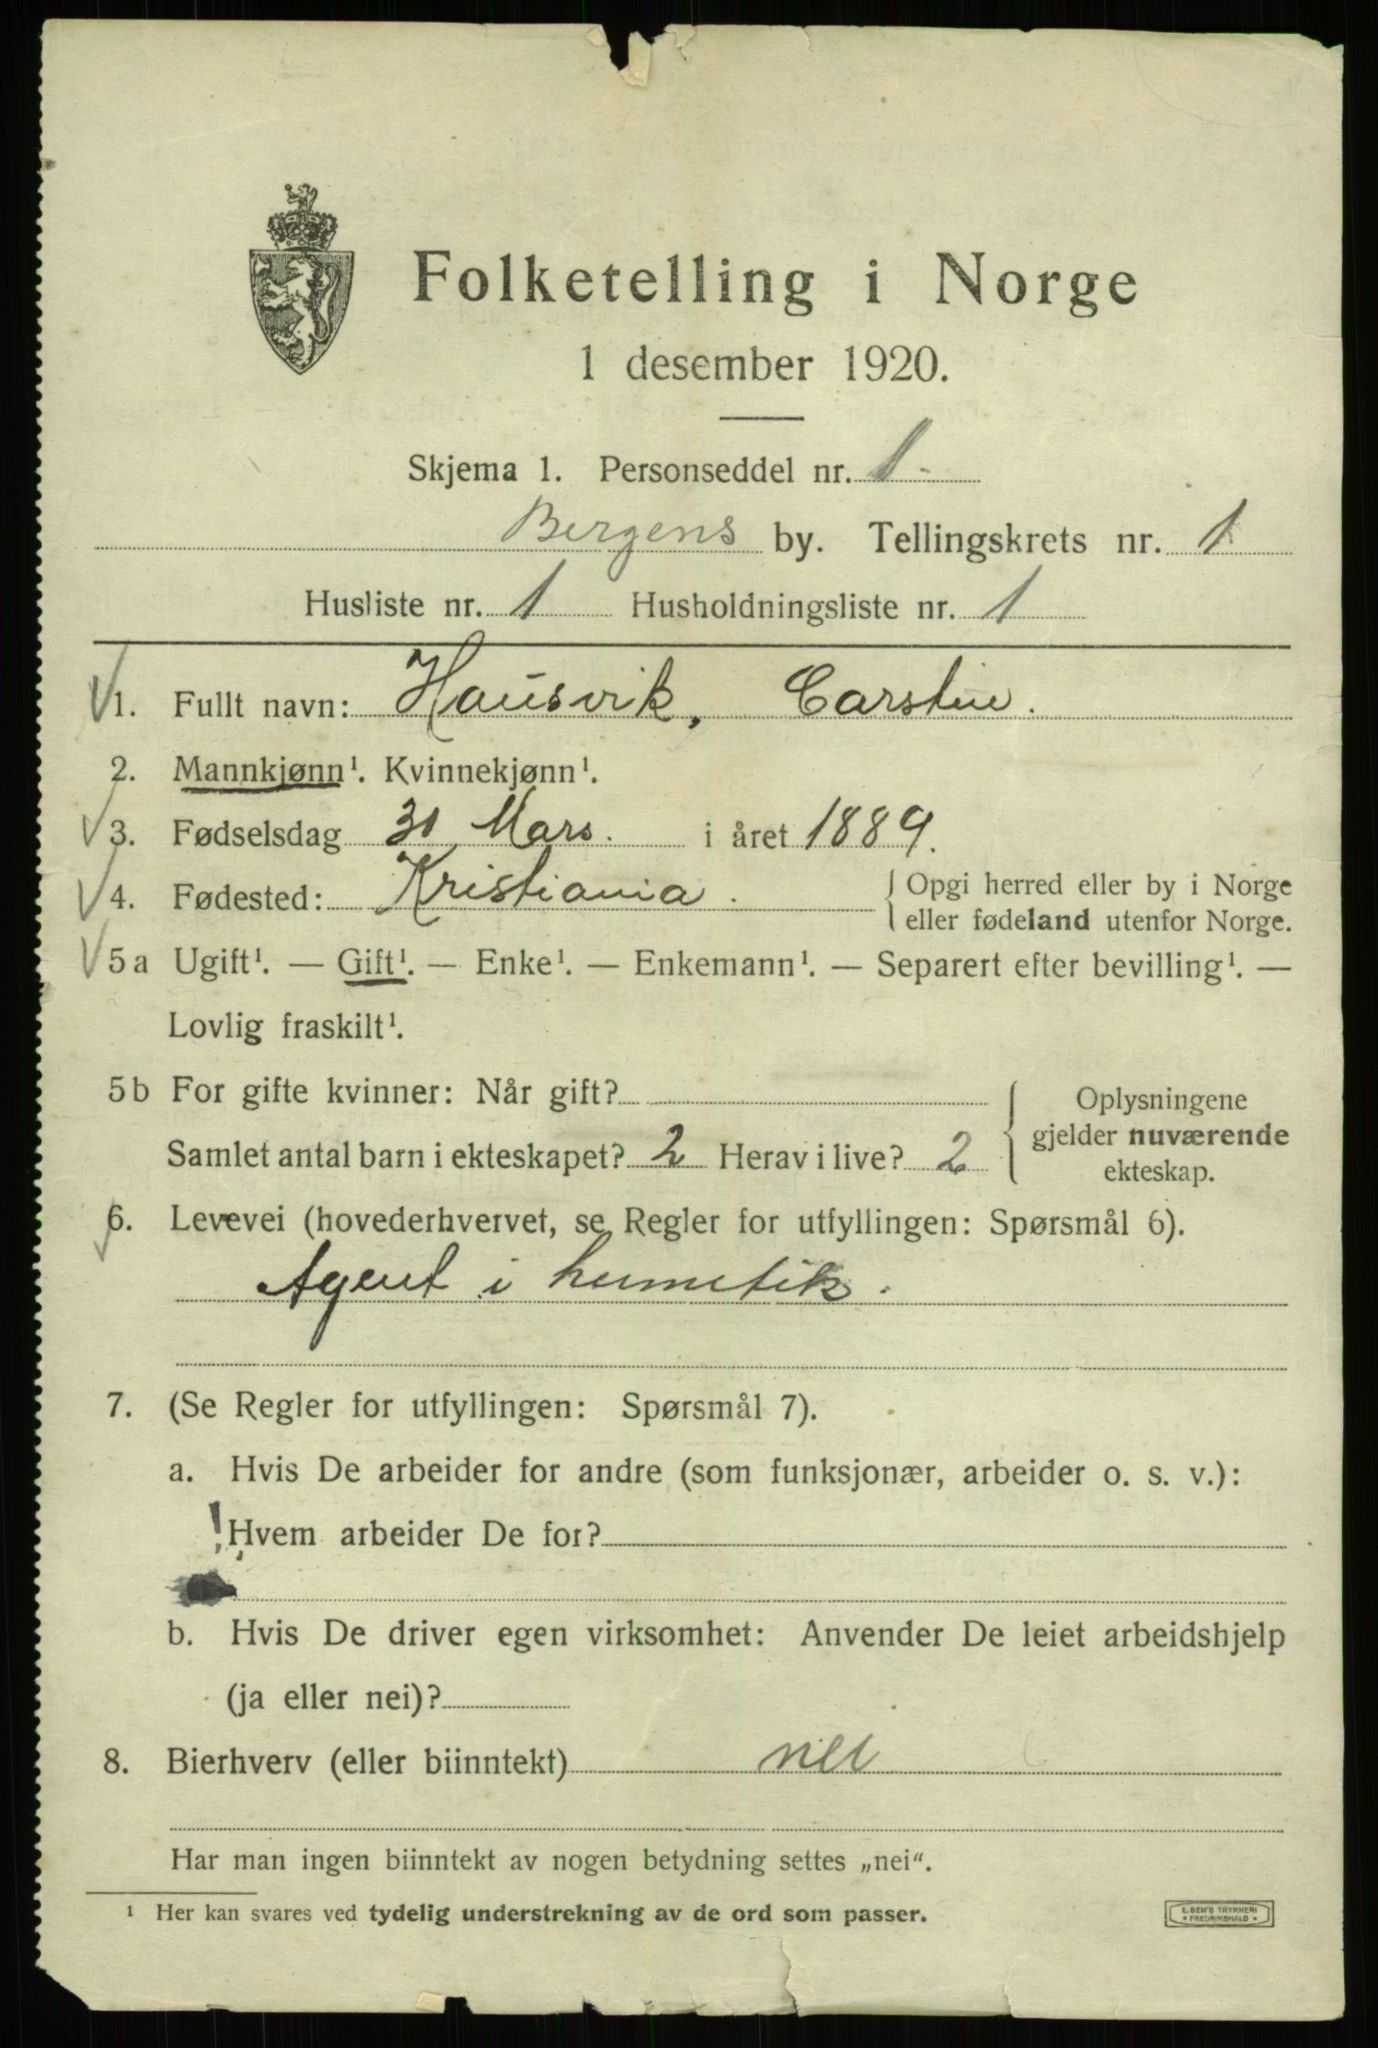 Folketelling i Norge
1 desember 1920.
Skjema 1. Personseddel nr. 1
Bergens by. Tellingskrets nr. 1
Husliste nr. 1 Husholdningsliste nr. 1
1. Fullt navn: Hausvik, Carsten.
2. Mannkjønn¹. Kvinnekjønn¹.
3. Fødselsdag 30 Mars. i året 1889.
4. Fødested: Kristiania. { Opgi herred eller by i Norge
eller fødeland utenfor Norge.
5a Ugift¹. — Gift¹. — Enke¹. — Enkemann¹. — Separert efter bevilling¹. —
Lovlig fraskilt¹.
5b For gifte kvinner: Når gift?
Samlet antal barn i ekteskapet? 2 Herav i live? 2
Oplysningene
gjelder nuværende
ekteskap.
6. Levevei (hovederhvervet, se Regler for utfyllingen: Spørsmål 6).
Agent i hermetik.
7. (Se Regler for utfyllingen: Spørsmål 7).
a. Hvis De arbeider for andre (som funksjonær, arbeider o. s. v.):
! Hvem arbeider De for?
b. Hvis De driver egen virksomhet: Anvender De leiet arbeidshjelp
(ja eller nei)?
8. Bierhverv (eller biinntekt) nei
Har man ingen biinntekt av nogen betydning settes „nei“.
¹ Her kan svares ved tydelig understrekning av de ord som passer.
E. SEM'S TRYKKERI
* FREDRIKSHALD *